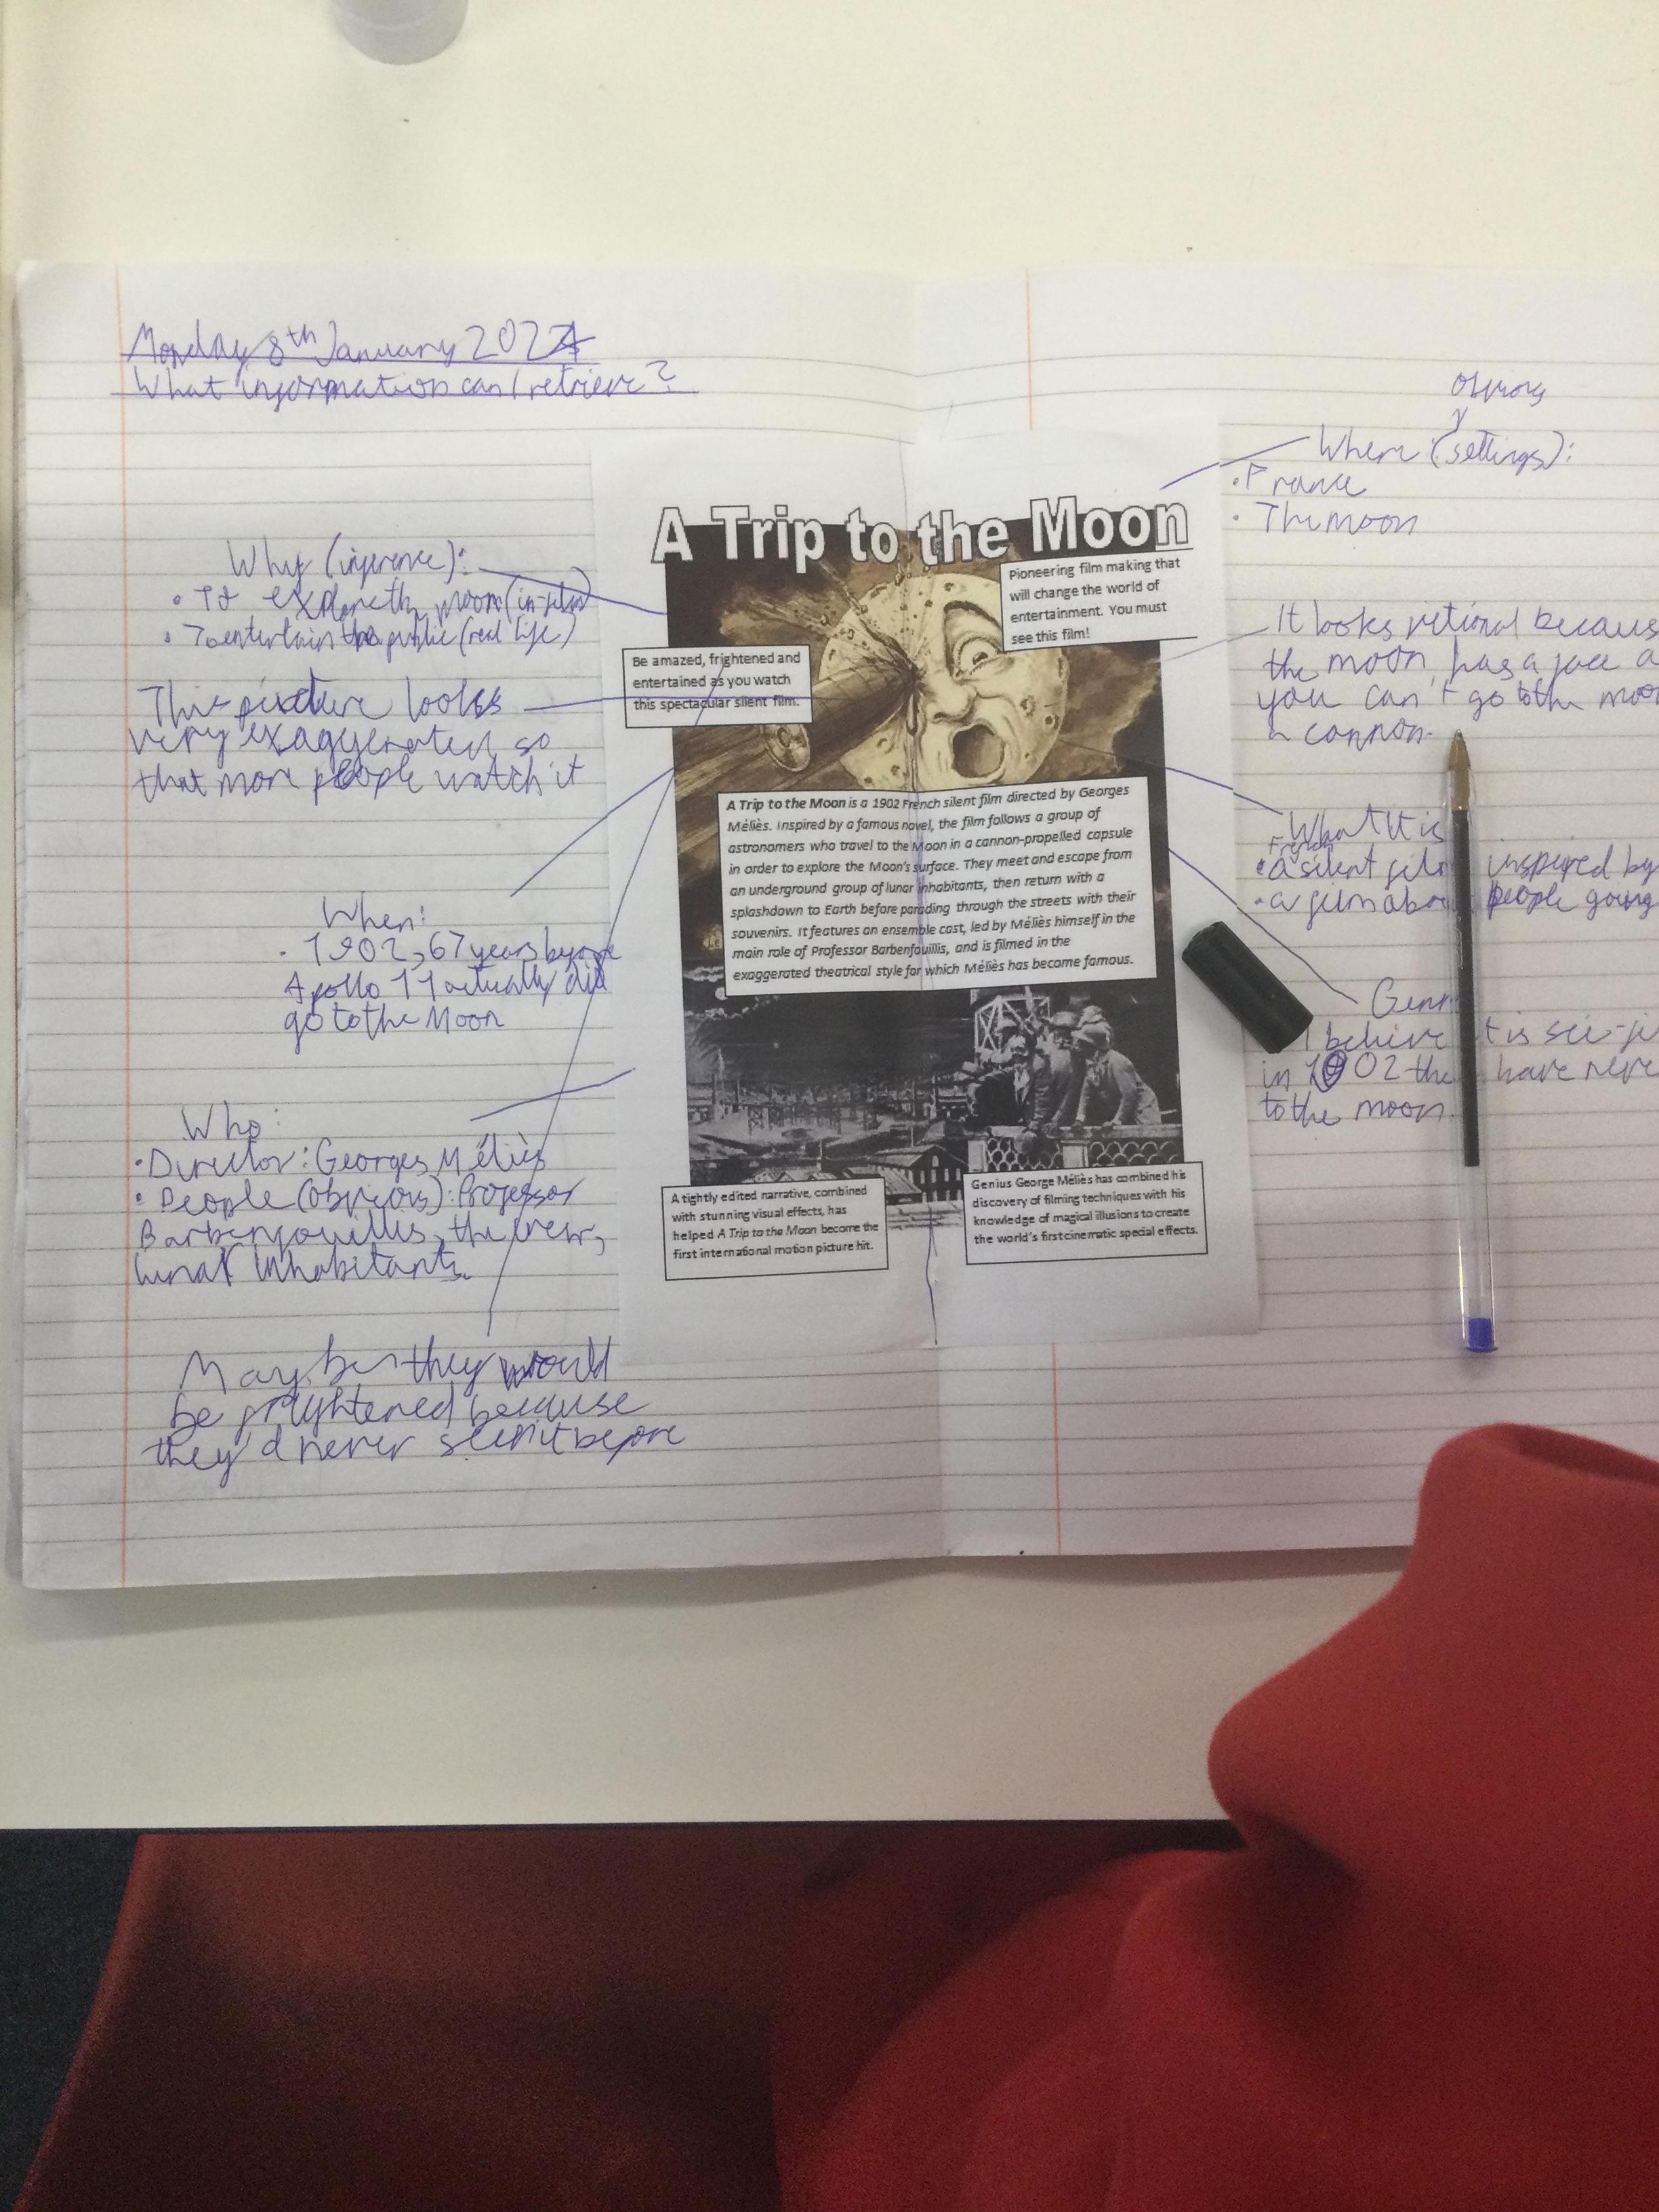 Monday 8th January 2024
What information can I retrieve?
Why (inference):
• To explore the moon (in-film)
• To entertain the public (real life)
This picture looks
very exaggerated so
that more people watch it
When:
• 1902, 67 years before
Apollo 11 actually did
go to the Moon
Who:
• Director: Georges Méliès
• People (obvious): Professor
Barbenfouillis, the crew,
lunar inhabitants.
Maybe they would
be frightened because
they'd never seen it before
A Trip to the Moon
Pioneering film making that
will change the world of
entertainment. You must
see this film!
Be amazed, frightened and
entertained as you watch
this spectacular silent film.
A Trip to the Moon is a 1902 French silent film directed by Georges
Méliès. Inspired by a famous novel, the film follows a group of
astronomers who travel to the Moon in a cannon-propelled capsule
in order to explore the Moon's surface. They meet and escape from
an underground group of lunar inhabitants, then return with a
splashdown to Earth before parading through the streets with their
souvenirs. It features an ensemble cast, led by Méliès himself in the
main role of Professor Barbenfouillis, and is filmed in the
exaggerated theatrical style for which Méliès has become famous.
A tightly edited narrative, combined
with stunning visual effects, has
helped A Trip to the Moon become the
first international motion picture hit.
Genius George Méliès has combined his
discovery of filming techniques with his
knowledge of magical illusions to create
the world's first cinematic special effects.
Obvious
Where (settings):
• France
• The moon
It looks fictional because
the moon has a face a
you can't go to the moon
cannon.
What It is
French
• a silent film inspired by
• a film about people going
Genre
I believe it is sci-fi
in 1902 the have never
to the moon.